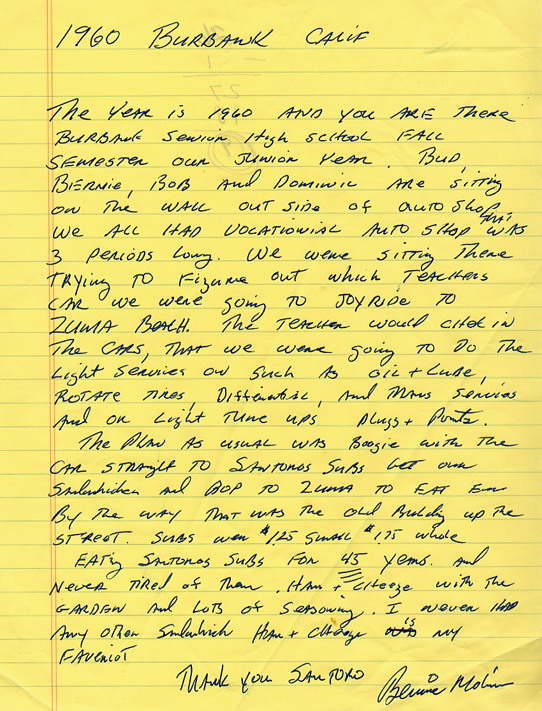 1960 Burbank Calif
The Year is 1960 and you are there
Burbank Senior High School Fall
Semester our Junior Year. Bud,
Bernie, Bob and Dominic are sitting
on the wall out side of auto shop that
we all had vocational auto shop was
3 periods long. We were sitting there
trying to figure out which teachers
car we were going to joyride to
Zuma Beach. The teacher would chek in
the cars, that we were going to do the
light services on such as oil + lube,
rotate tires, differential, and trans services
and on light tune ups plugs + points.
The plan as usual was boogie with the
car straight to Santoros Subs get our
Sandwiches and bop to Zuma to eat em
By the way that was the old building up the
street. Subs were $1.25 small $1.75 whole
Eating Santoros Subs for 45 years. and
never tired of them. Ham + cheeze with the
garden and lots of seasoning. I never had
any other Sandwich Ham + cheeze is my
faveriot
Thank you Santoro
Bernie